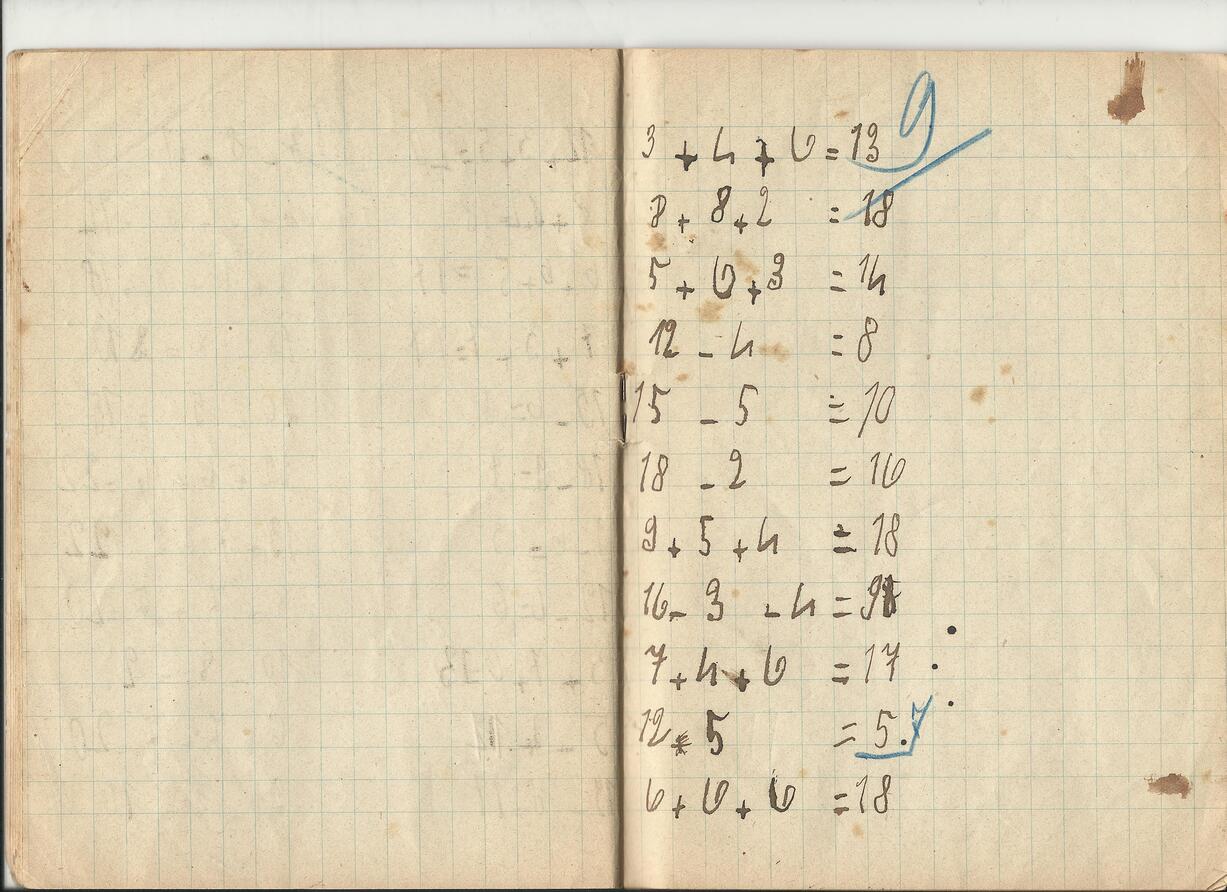 9
3 + 4 + 6 = 13
8 + 8 + 2 = 18
5 + 6 + 3 = 14
12 - 4 = 8
15 - 5 = 10
18 - 2 = 16
9 + 5 + 4 = 18
16 - 3 - 4 = 9
7 + 4 + 6 = 17
12 - 5 = 5. 7
6 + 6 + 6 = 18